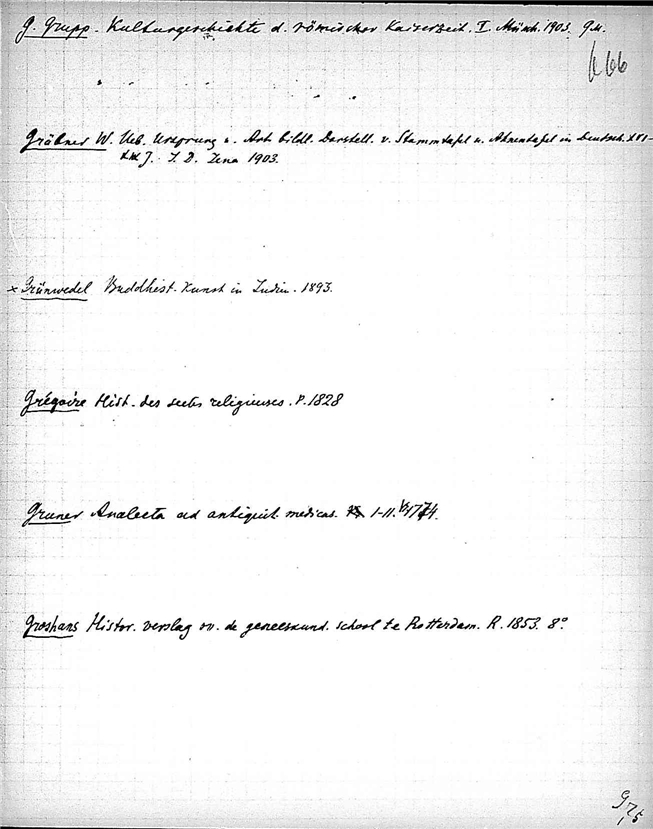 G. Grupp. Kulturgeschichte d. römischer Kaiserzeit. I. Münch. 1903. 9 M.
666
Gräbner W. Ueb. Ursprung u. Art bildl. Darstell. v. Stammtafel u. Ahnentafel in Deutsch. XVI-
J. I. D. Jena 1903.
× Grünwedel Buddhist. Kunst in Indien. 1893.
Grégoire Hist. des sectes religieuses. P. 1828
Gruner Analecta ad antiquit. medicas. I-II. 1774.
Groshans Histor. verslag ov. de geneeskund. school te Rotterdam. R. 1853. 8°